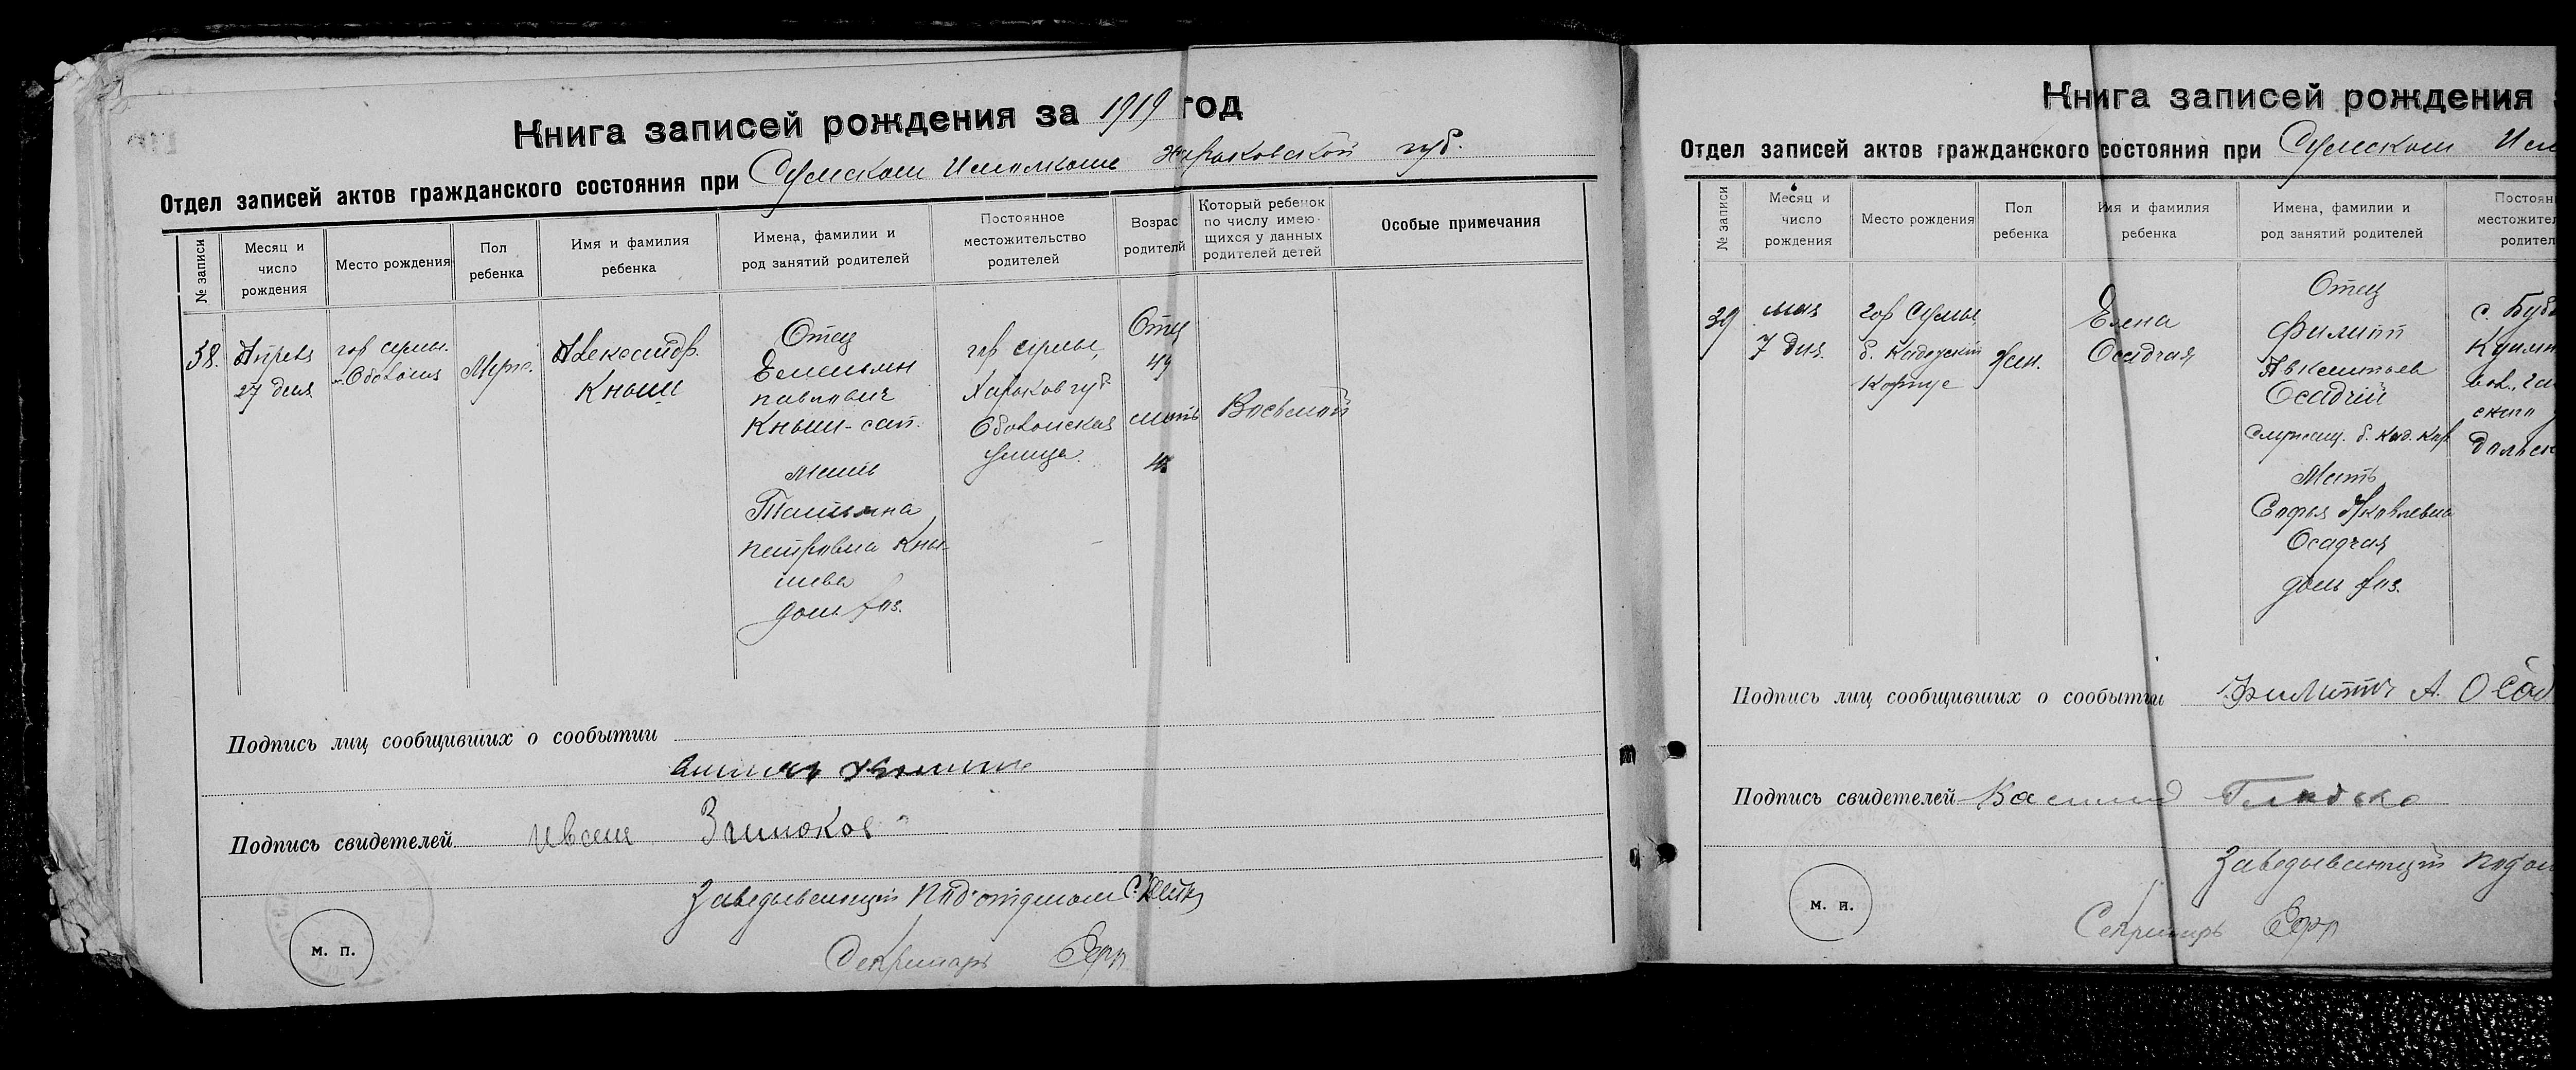 Книга записей рождения за 1919 год
Отдел записей актов гражданского состояния при Сумском Исполкоме Харьковской губ.
№ записи
Месяц и
число
рождения
Место рождения
Пол
ребенка
Имя и фамилия
ребенка
Имена, фамилии и
род занятий родителей
Постоянное
местожительство
родителей
Возрас
родителй
Который ребенок
по числу имею-
щихся у данных
родителей детей
Особые примечания
38.
Апреля
27 дня
гор Сумы.
Оболонь
Муж.
Александр.
Кныш
Отец
Емельян
Павлович
Кныш - сап.
Мать
Татьяна
Петровна Кны-
шева
дом. хоз.
гор Сумы,
Харьков губ
Оболонская
улица.
Отец
49
мать
Восьмой
Подпись лиц сообщивших о сообытии
Подпись свидетелей Иван
Заведывающий Под'отделом
Секретарь
м. п.
Книга записей рождения
Отдел записей актов гражданского состояния при Сумском Исп
№ записи
Месяц и
число
рождения
Место рождения
Пол
ребенка
Имя и фамилия
ребенка
Имена, фамилии и
род занятий родителей
Постоян
местожител
родител
39
мая
7 дня.
гор Сумы
б. Кадетский
Корпус
Жен.
Елена
Осадчая
Отец
Филипп
Авксентьев
Осадчий
Служащ. б. Кад. Кор.
Мать
Софья Яковлевна
Осадчая
дом хоз.
с.
Подпись лиц сообщивших о сообытии Филиппъ А. Осад
Подпись свидетелей Василий Гладско
Заведывающий Под'от
Секретарь
м. п.